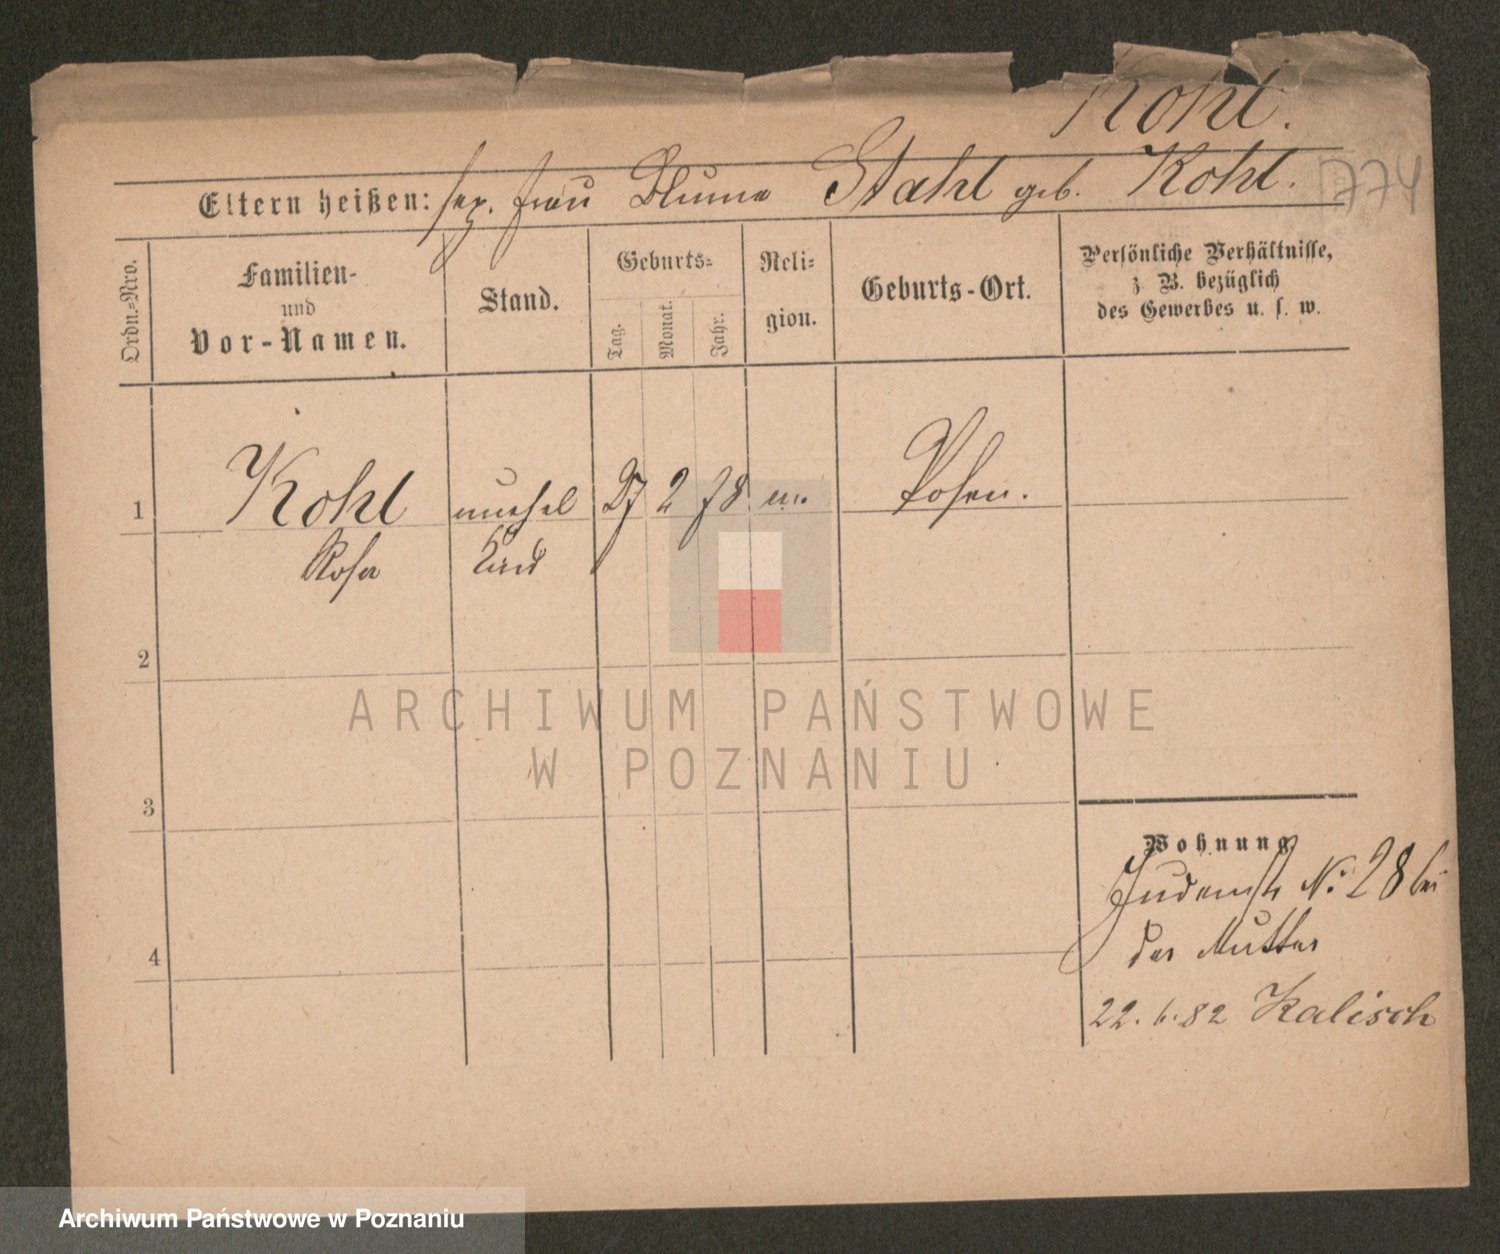 Kohl.
Eltern heißen: sep. Frau Blume Stahl geb. Kohl.
1774
Ordn.=Nro.
Familien-
und
Vor-Namen.
Stand.
Geburts=
Tag.
Monat.
Jahr.
Reli=
gion.
Geburts-Ort.
Persönliche Verhältnisse,
z. B. bezüglich
des Gewerbes u. s. w.
1 Kohl unehel 27 2 78 m. Posen.
Rosa Kind
2
3
4
Wohnung
Judenstr No. 28 bei
der Mutter
22.6.82 Kalisch
ARCHIWUM PAŃSTWOWE
W POZNANIU
Archiwum Państwowe w Poznaniu